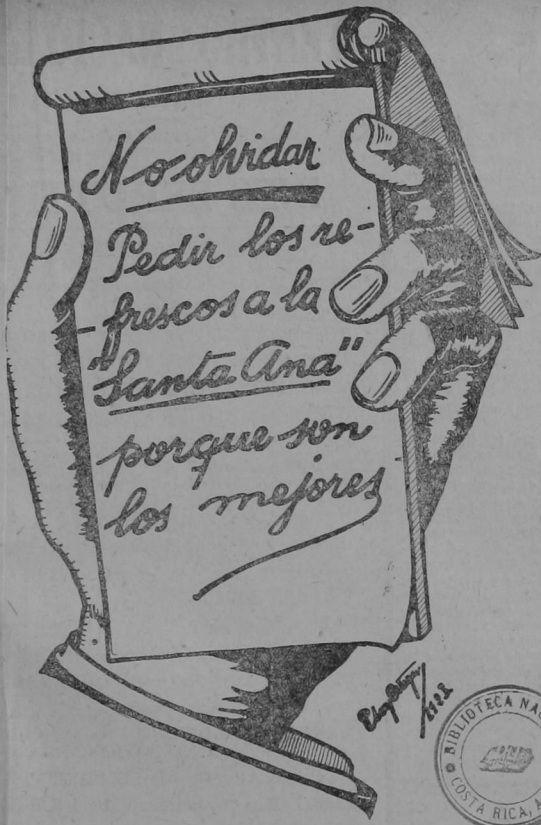 No olvidar
Pedir los re-
frescos a la
"Santa Ana"
porque son
los mejores
BIBLIOTECA NAC
COSTA RICA, A